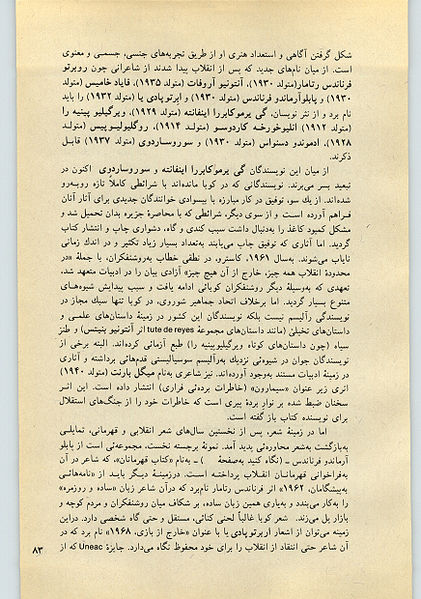 شکل گرفتن آگاهی و استعداد هنری او از طریق تجربه‌های جنسی، جسمی و معنوی
است. از میان نام‌های جدید که پس از انقلاب پیدا شدند از شاعرانی چون روبرتو
فرناندس رتامار(متولد ۱۹۳۰)، آنتونیو آروفات (متولد ۱۹۳۵)، فایاد خامیس (متولد
۱۹۳۰) و پابلوآرماندو فرناندس (متولد ۱۹۳۰) و ابرتوپادی یا (متولد ۱۹۳۲) را باید
نام برد و از نثر نویسان، گی یرموکابررا اینفانته (متولد ۱۹۲۹)، ویرگیلیو پینیه را
(متولد ۱۹۱۲) انلیوخورخـه کاردوسـو (متولـد ۱۹۱۴)، روگلیولیـوپیس (متولـد
۱۹۲۸)، ادموندو دسنواس (متولد ۱۹۳۰) و سوروسـاردوی (متولد ۱۹۳۷) قابـل
ذکرند.
از میان این نویسندگان گی یرموکابررا اینفانته و سوروساردوی اکنون در
تبعید بسر می‌برند. نویسندگانی که در کوبا مانده‌اند با شرائطی کاملاً تازه روبـه‌رو
شده‌اند. از یك سو، توفیق در کار مبارزه با بیسوادی خوانندگان جدیدی برای آثار آنان
فراهم آورده است و از سوی دیگر، شرائطی که با محاصرهٔ جزیره بدان تحمیل شد و
مشکل کمبود کاغذ را بەدنبال داشت سبب کندی و گاه، دشواری چاپ و انتشار کتاب
گردید. اما آثاری که توفیق چاپ می‌یابند به‌تعداد بسیار زیاد تکثیر و در اندك زمانی
نایاب می‌شوند. به‌سال ۱۹۶۱، کاسترو، در نطقی خطاب به‌روشنفکران، با جملهٔ «در
محدودهٔ انقلاب همه چیز، خارج از آن هیچ چیز» آزادی بیان را در ادبیات متعهد شد،
تعهدی که به‌وسیلهٔ دیگر روشنفکران کوبائی ادامه یافت و سبب پیدایش شیوه‌های
متنوع بسیار گردید. اما برخلاف اتحاد جماهیر شوروی، در کوبا تنها سبك مجاز در
نویسندگی رآلیسم نیست بلکه نویسندگان این کشور در زمینهٔ داستان‌های علمـی و
داستان‌های تخیلی (مانند داستان‌های مجموعهٔ tute de reyes اثر آنتونیو بنیتس) و طنز
سیاه (چون داستان‌های کوتاه ویرگیلیوپینیه را) طبع آزمائی کرده‌اند. البته برخی از
نویسندگان جوان در شیوه‌ئی نزدیك به‌رآلیسم سوسیالیستی قدم‌هائی برداشته و آثاری
در زمینهٔ ادبیات مستند به‌وجود آورده‌اند. نیز شاعری به‌نام میگل بارنت (متولد ۱۹۴۰)
اثری زیر عنوان «سیمارون» (خاطرات برده‌ئی فراری) انتشار داده است. این اثـر
سخنان ضبط شده بر نوار بردهٔ پیری است که خاطرات خود را از جنگ‌های استقلال
برای نویسنده کتاب باز گفته است.
اما در زمینهٔ شعر، پس از نخستین سال‌های شعر انقلابی و قهرمانی، تمایلـی
به‌بازگشت به‌شعر محاوره‌ئی پدید آمد. نمونهٔ برجسته نخست، مجموعه‌ئی است از پابلو
آرماندو فرناندس ـ (نگاه کنید به‌صفحهٔ ) ـ به‌نام «کتاب قهرمانان»، که شاعر در آن
به‌فراخوانی قهرمانـان انقـلاب پرداختـه اسـت. درزمینـهٔ دیگر بایـد از «نامه‌هائـی
به‌پیشگامان، ۱۹۶۲» اثر فرناندس رتامار نام‌برد که درآن شاعر زبان «ساده و روزمره»
را به‌کار می‌بندد و به‌یاری همین زبان ساده، بر شکاف میان روشنفکران و مردم کوچه و
بازار پل می‌زند. شعر کوبا غالباً لحنی کنائی، مستقل و حتی گاه شخصی دارد. دراین
زمینه می‌توان از اشعار ابرتوپادی یا با عنوان «خارج از بازی، ۱۹۶۸» نام برد که در
آن شاعر حتی انتقاد از انقلاب را برای خود محفوظ نگاه می‌دارد. جایزهٔ Uneac که از
۸۳